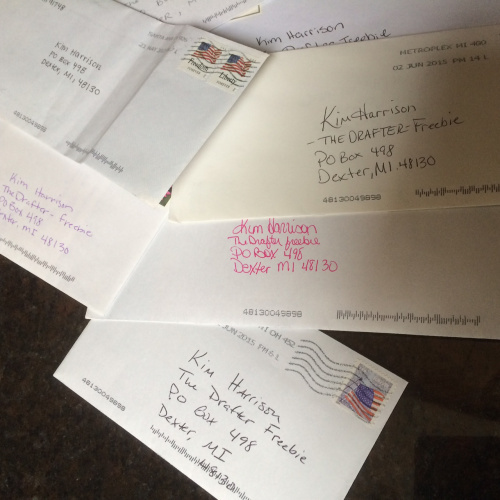 Kim Harrison
The Drafter Freebie
Kim Harrison
PO Box 498
Dexter, MI 48130
FOREVER
48130049898
METROPLEX MI 480
02 JUN 2015 PM 14 L
Kim Harrison
- THE DRAFTER Freebie
PO Box 498
Dexter, MI. 48130
48130049898
Kim Harrison
The Drafter - Freebie
PO Box 498
MI 48130
Kim Harrison
The Drafter freebie
PO Box 498
Dexter MI 48130
48130049898
OH 452
JUN 2015 PM 6 L
Kim Harrison
The Drafter Freebie
PO Box 498
Dexter, MI
48130
48130049898